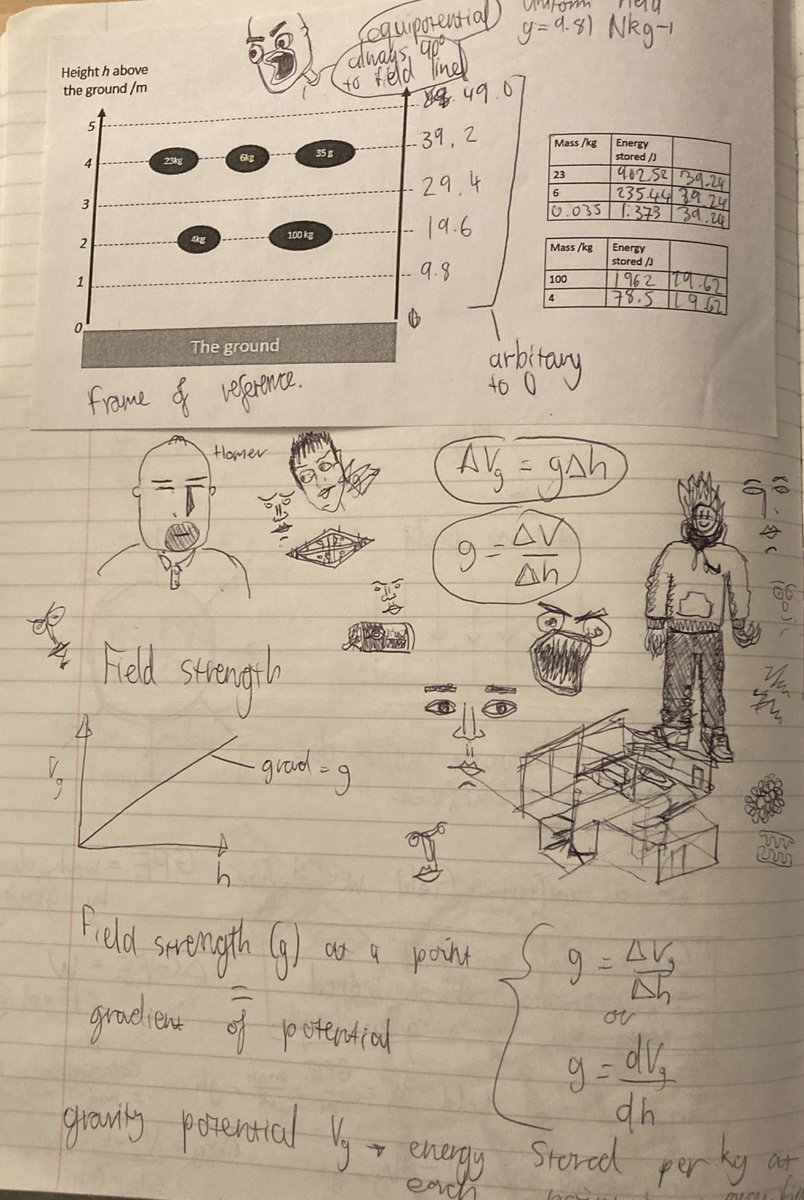 equipotential
always 90°
to field line
uniform field
g = 9.81 Nkg-1
Height h above
the ground /m
5
4
3
2
1
0
23kg
6kg
35 g
4kg
100 kg
49.0
39.2
29.4
19.6
9.8
0
The ground
Frame of reference.
arbitary
to 0
Mass /kg Energy stored /J
23 902.52 39.24
6 235.44 39.24
0.035 1.373 39.24
Mass /kg Energy stored /J
100 1962 19.62
4 78.5 19.62
Homer
ΔVg = gΔh
g = ΔV/Δh
Field strength
Vg
grad = g
h
Field strength (g) at a point
=
gradient of potential
g = ΔVg/Δh
or
g = dVg/dh
gravity potential Vg → energy stored per kg at
each